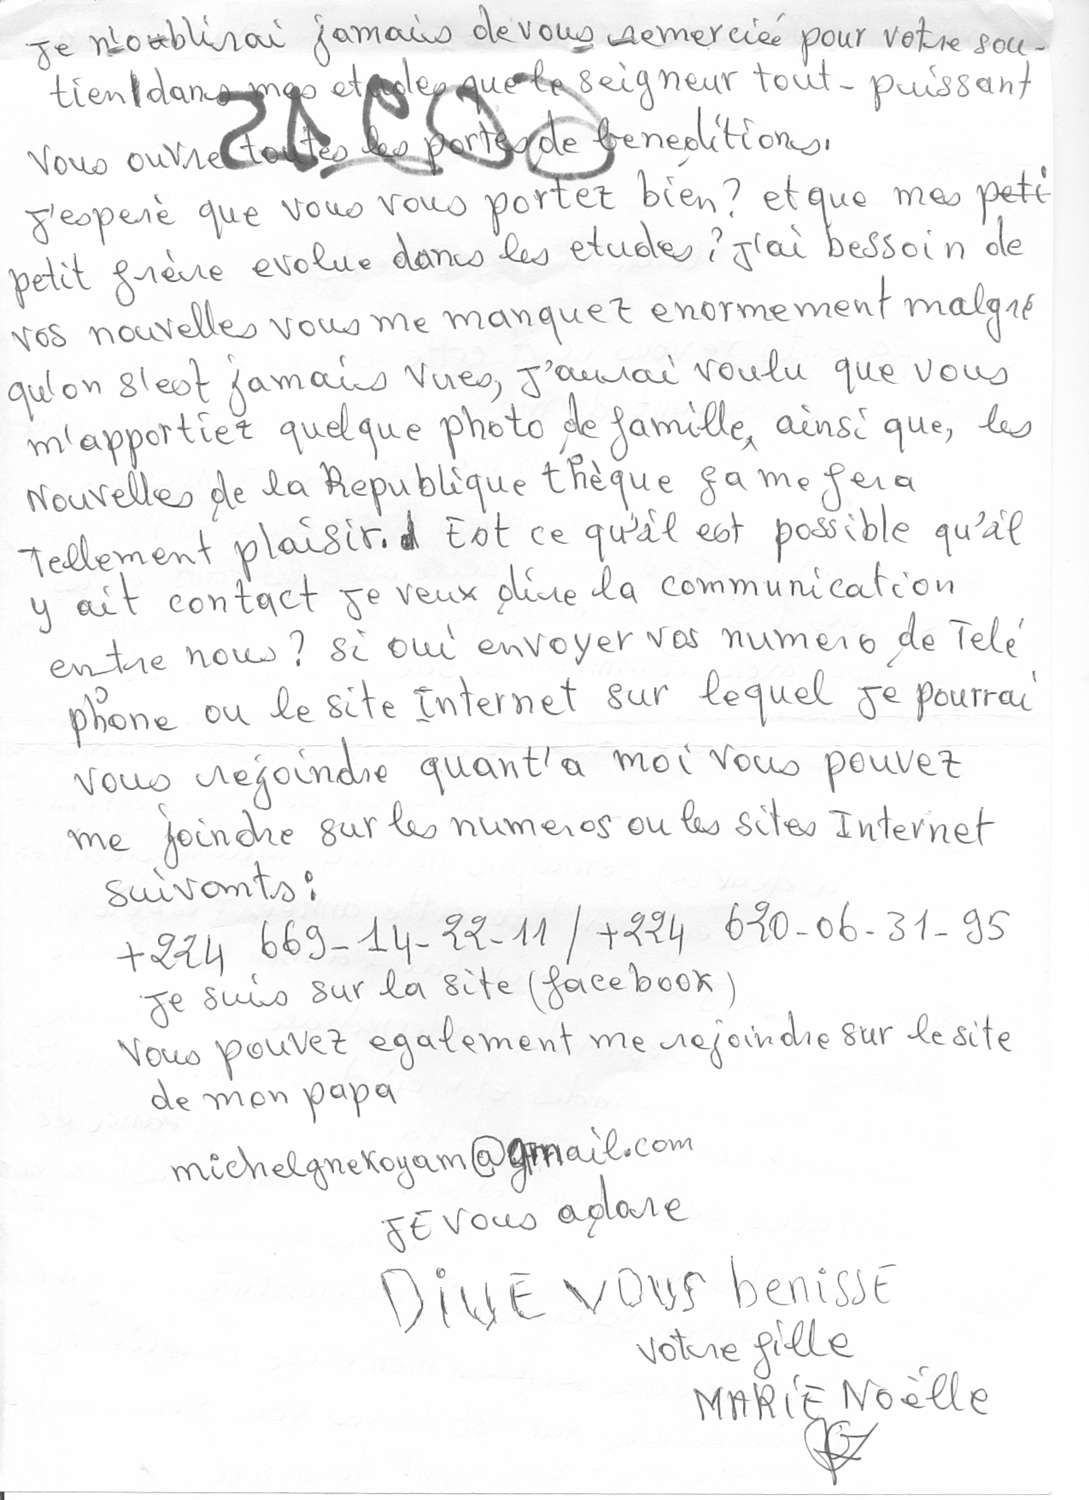 Je n'oublirai jamais de vous remerciée pour votre sou-
tien dans mes etudes que le seigneur tout-puissant
vous ouvre toutes les portes de beneditions.
J'esperè que vous vous portez bien? et que mes peti
petit frère evolue dans les etudes? J'ai bessoin de
vos nouvelles vous me manquez enormement malgré
qu'on s'est jamais vues, J'aurai voulu que vous
m'apportiez quelque photo de famille, ainsi que, les
Nouvelles de la Republique thèque ça me fera
Tellement plaisir. Est ce qu'il est possible qu'il
y ait contact Je veux dire la communication
entre nous? si oui envoyer vos numero de Telé
phone ou le site Internet sur lequel Je pourrai
vous rejoindre quant'a moi vous pouvez
me joindre sur les numeros ou les sites Internet
suivants:
+224 669-14-22-11 / +224 620-06-31-95
Je suis sur la site (facebook)
Vous pouvez egalement me rejoindre sur le site
de mon papa
michelgnekoyam@gmail.com
JE vous adore
DiuE vous benissE
votre fille
MARIE Noëlle